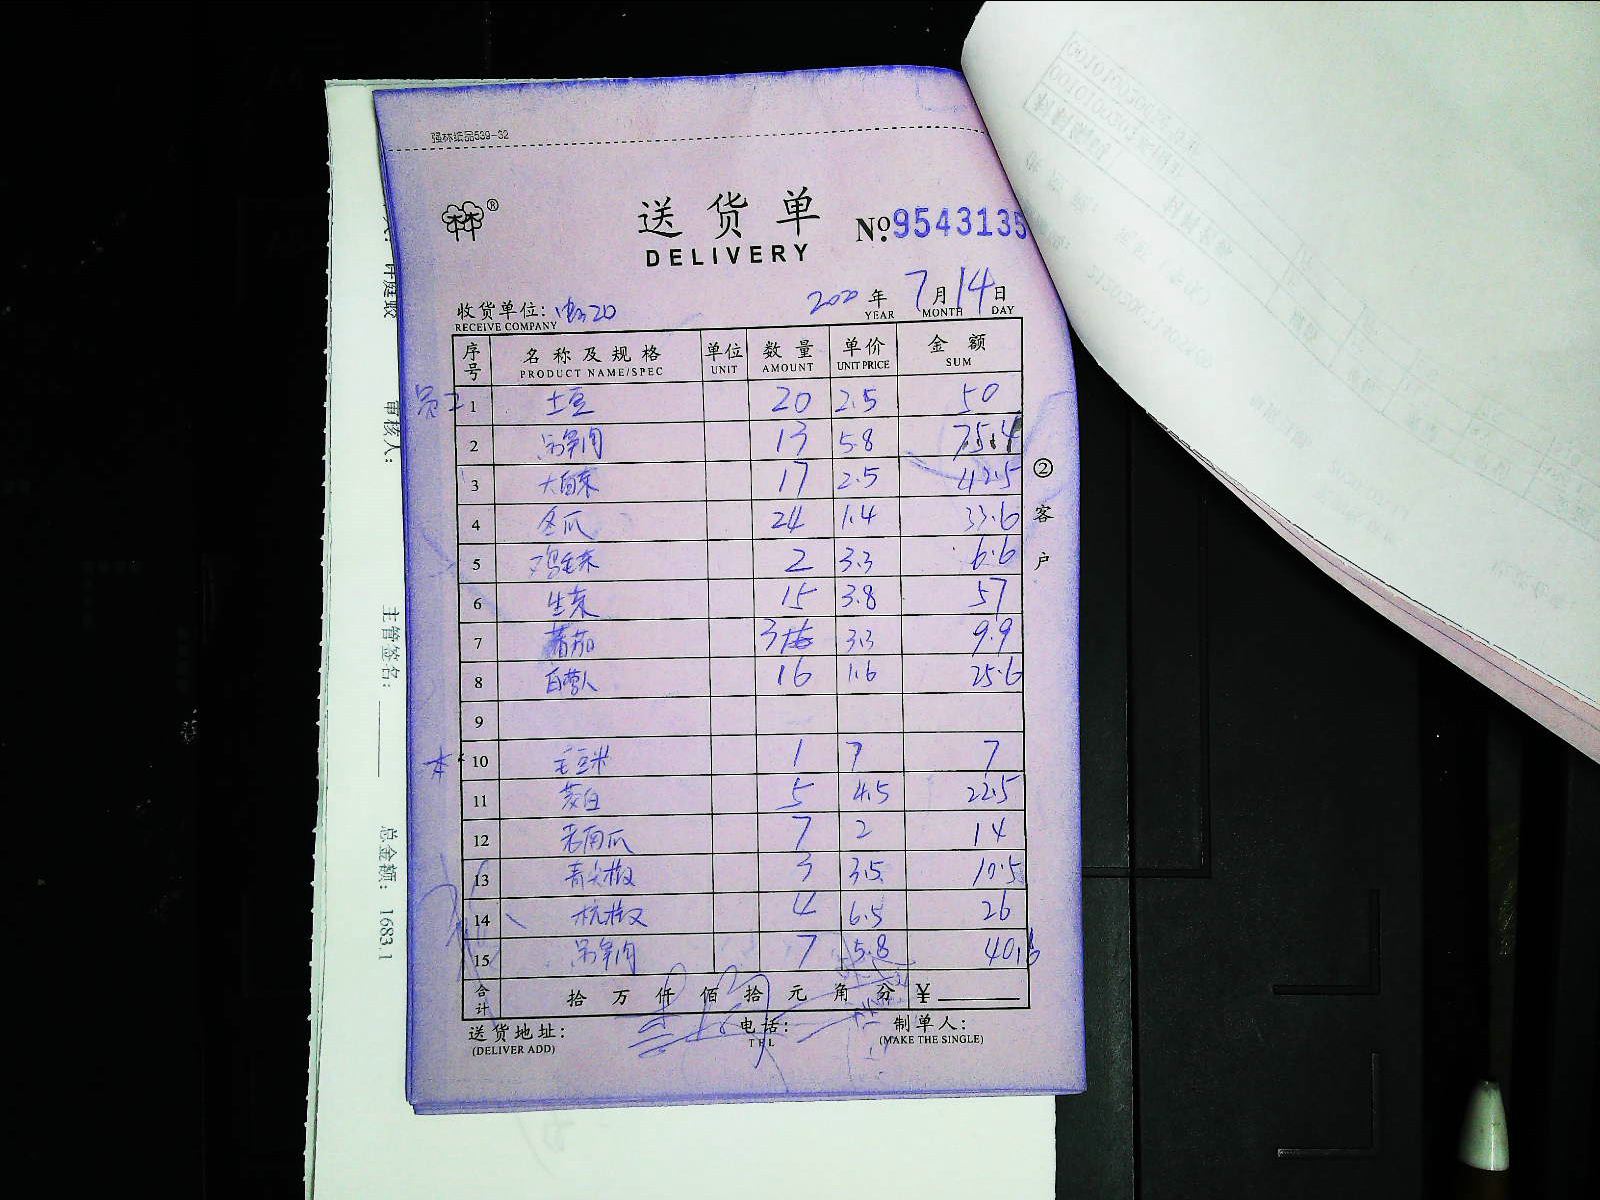 强林纸品539-32
送货单
DELIVERY
No.9543135
收货单位: 20
RECEIVE COMPANY
2020年7月14日
YEAR MONTH DAY
序号 名称及规格 单位 数量 单价 金额
PRODUCT NAME/SPEC UNIT AMOUNT UNIT PRICE SUM
员工 1 土豆 20 2.5 50
2 13 5.8 75.4
3 大白菜 17 2.5 42.5
4 冬瓜 24 1.4 33.6
5 鸡毛菜 2 3.3 6.6
6 生菜 15 3.8 57
7 蕃茄 3 3.3 9.9
8 白萝卜 16 1.6 25.6
9
本 10 毛豆米 1 7 7
11 茭白 5 4.5 22.5
12 老南瓜 7 2 14
13 青尖椒 3 3.5 10.5
14 杭椒 4 6.5 26
15 7 5.8 40.6
合计 拾 万 仟 佰 拾 元 角 分 ¥
送货地址: 电话: 制单人:
(DELIVER ADD) TEL (MAKE THE SINGLE)
②客户
审核人:
主管签名:
总金额: 1683.1